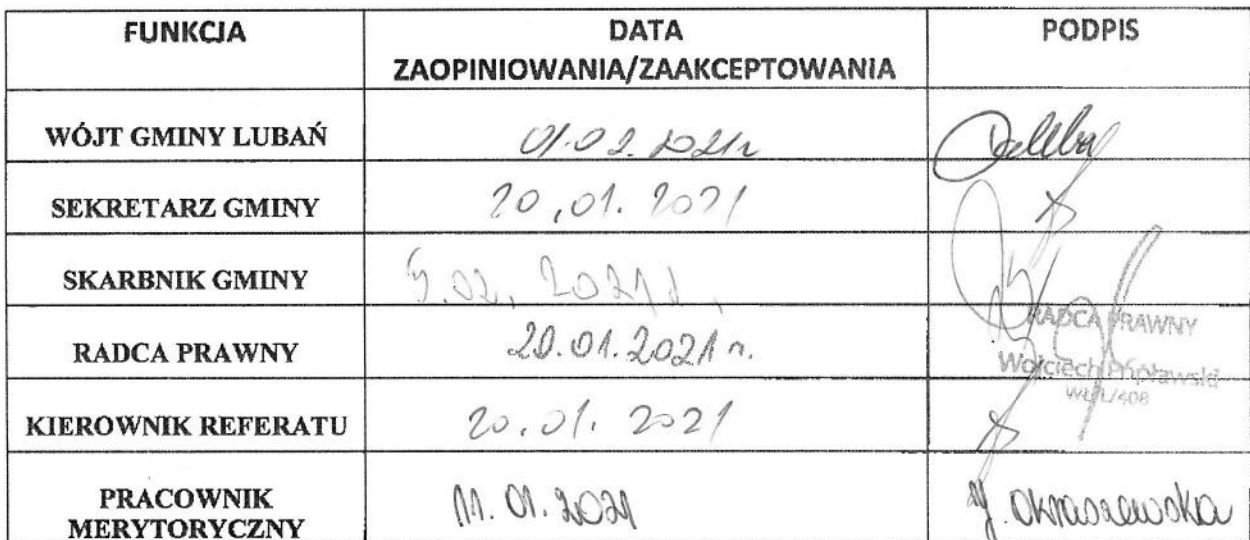 FUNKCJA DATA PODPIS
ZAOPINIOWANIA/ZAAKCEPTOWANIA
WÓJT GMINY LUBAŃ 01.02.2021r
SEKRETARZ GMINY 20.01.2021
SKARBNIK GMINY 5.02.2021
RADCA PRAWNY 20.01.2021 r.
RADCA PRAWNY
Wojciech Popławski
KIEROWNIK REFERATU 20.01.2021
PRACOWNIK
MERYTORYCZNY 11.01.2021 Okraszewska